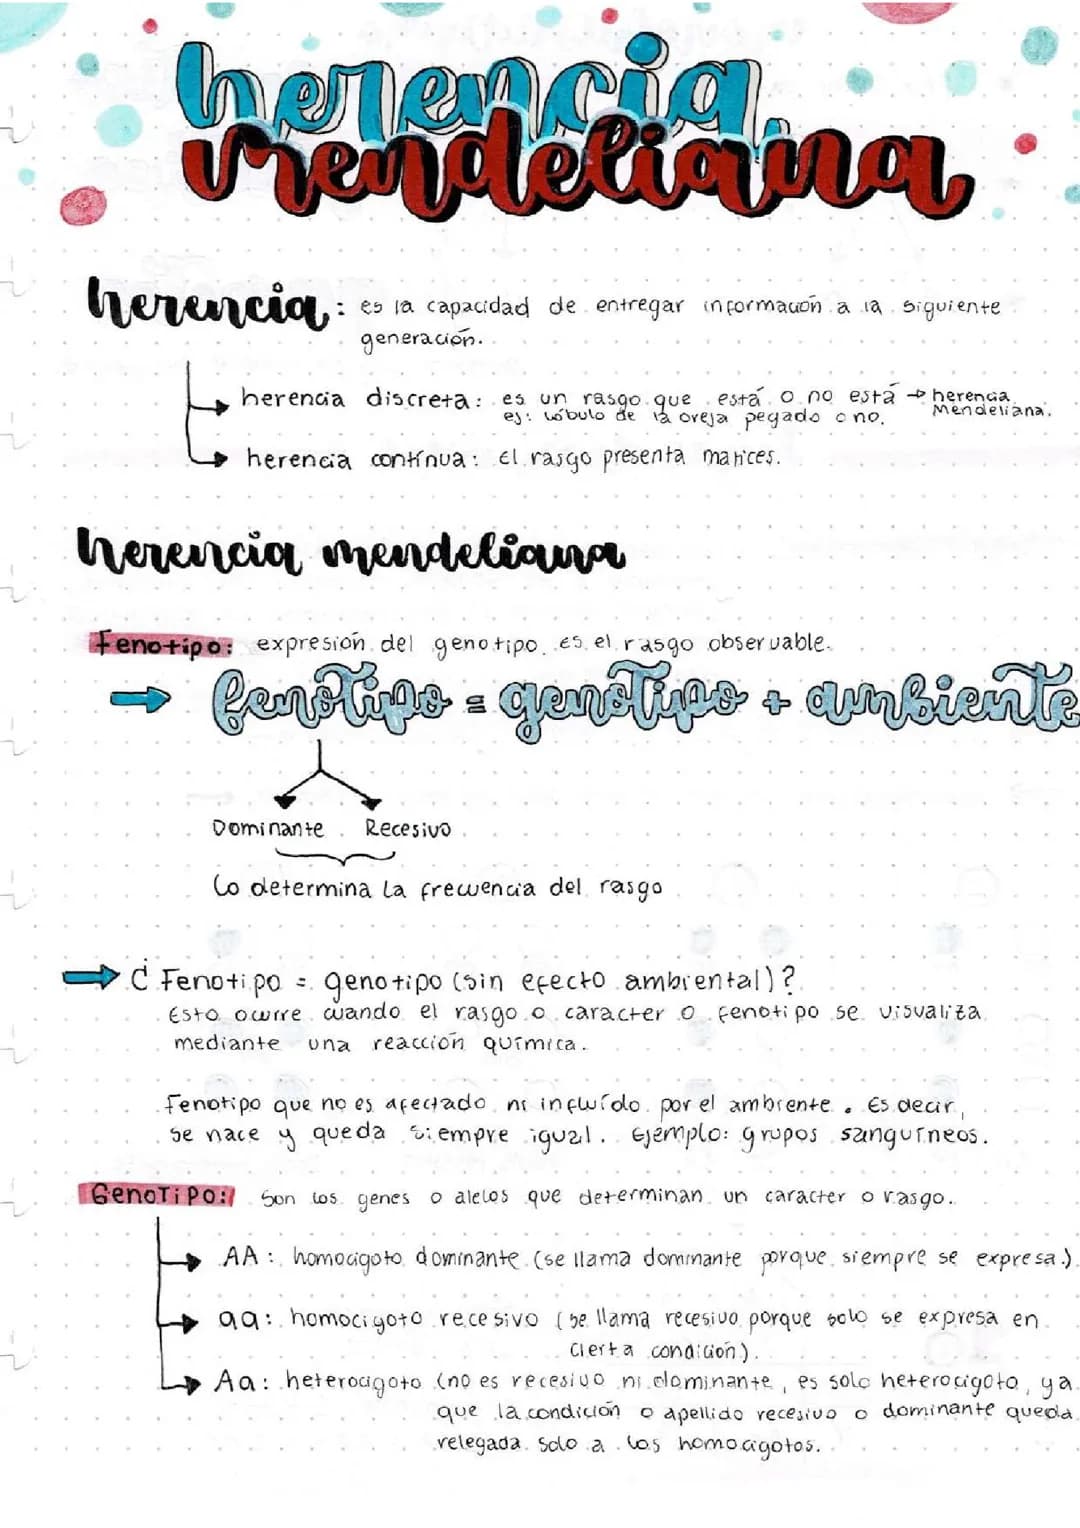 herencia
mendeliana
herencia: es la capacidad de entregar información a la siguiente
generación.
herencia discreta: es un rasgo que está o no está → herencia
ej: lóbulo de la oreja pegado o no. Mendeliana.
herencia contínua: El rasgo presenta matices.
herencia mendeliana
Fenotipo: expresión del genotipo es el rasgo observable.
→ fenotipo = genotipo + ambiente
Dominante Recesivo
Lo determina la frecuencia del rasgo
→ ¿Fenotipo = genotipo (sin efecto ambiental)?
Esto ocurre cuando el rasgo o caracter o fenotipo se visualiza
mediante una reacción química.
Fenotipo que no es afectado ni influído por el ambiente. Es decir,
se nace y queda siempre igual. Ejemplo: grupos sanguíneos.
Genotipo: Son los genes o alelos que determinan un caracter o rasgo.
AA: homocigoto dominante (se llama dominante porque siempre se expresa).
aa: homocigoto recesivo (se llama recesivo porque solo se expresa en
cierta condición).
Aa: heterocigoto (no es recesivo ni dominante, es solo heterocigoto, ya
que la condición o apellido recesivo o dominante queda
relegada solo a los homocigotos.